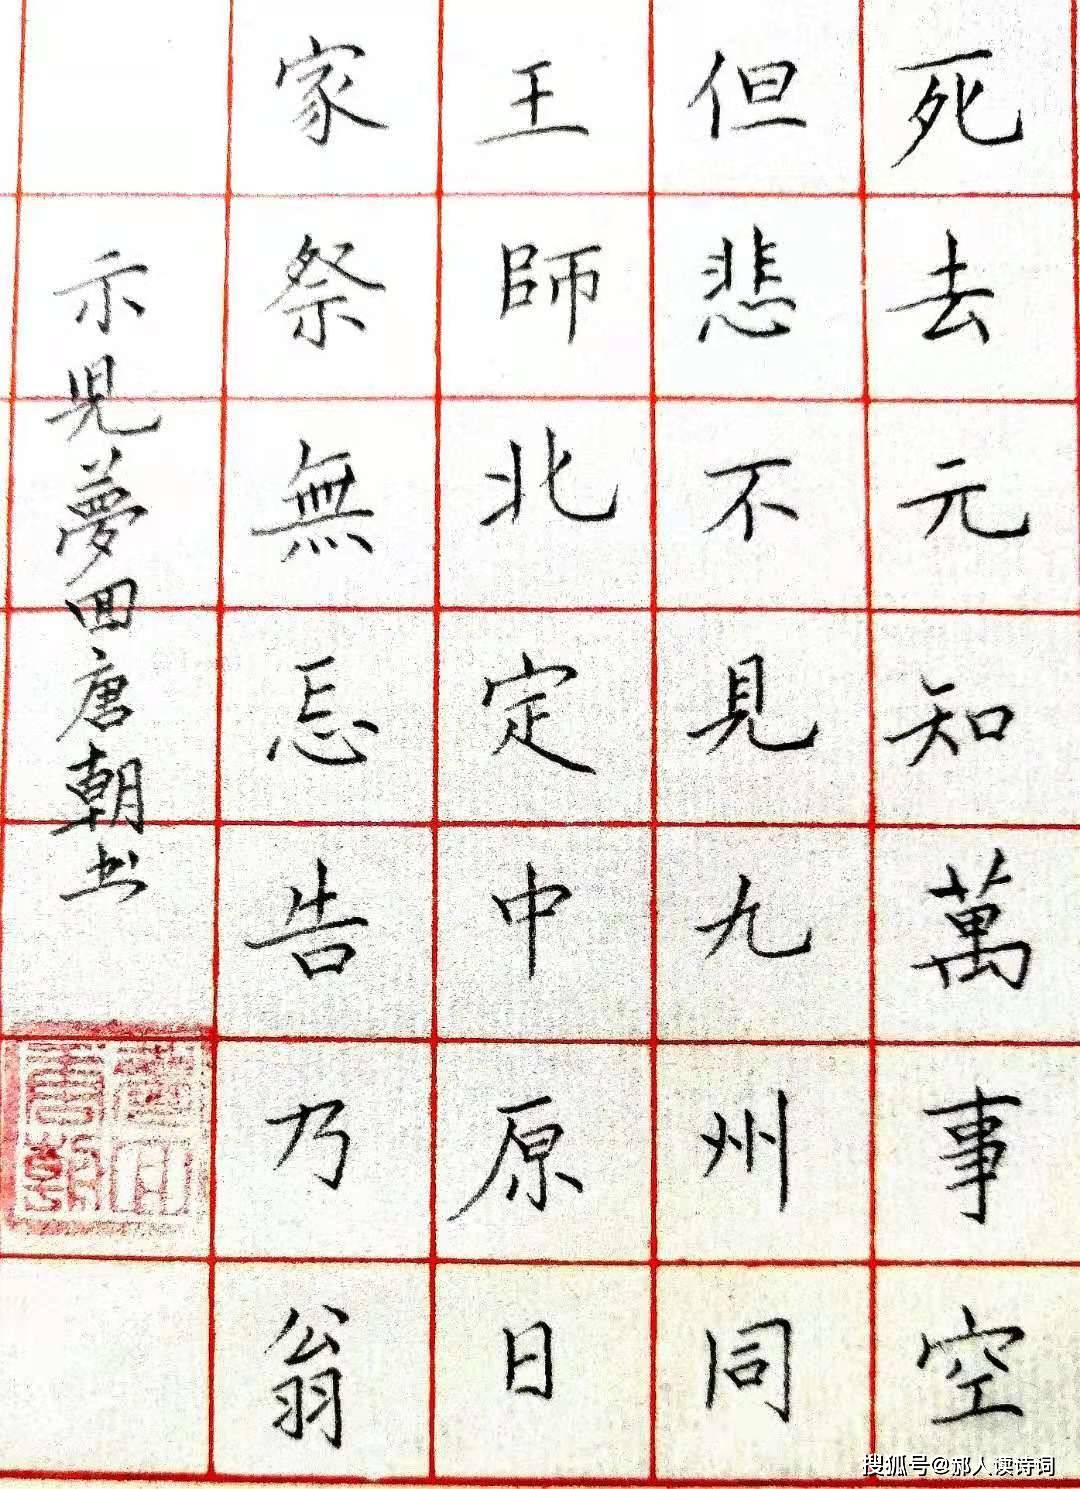 死去元知萬事空
但悲不見九州同
王師北定中原日
家祭無忘告乃翁
示兒夢回唐朝书
搜狐号@郝人读诗词